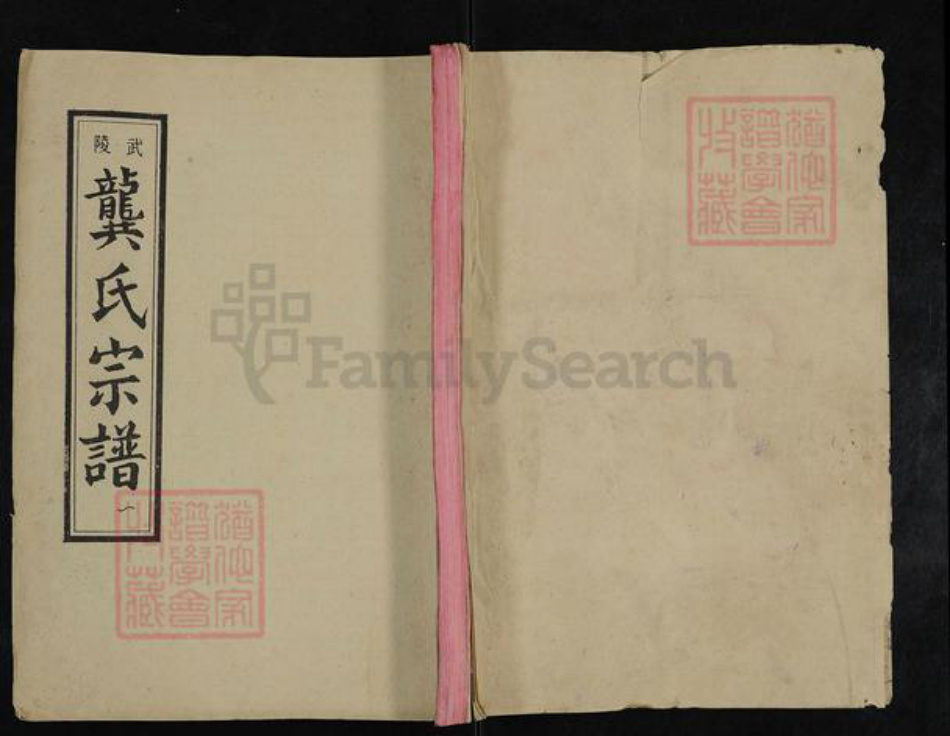 武陵
龔氏宗譜
一
猶他家
譜學會
收藏
FamilySearch
猶他家
譜學會
收藏